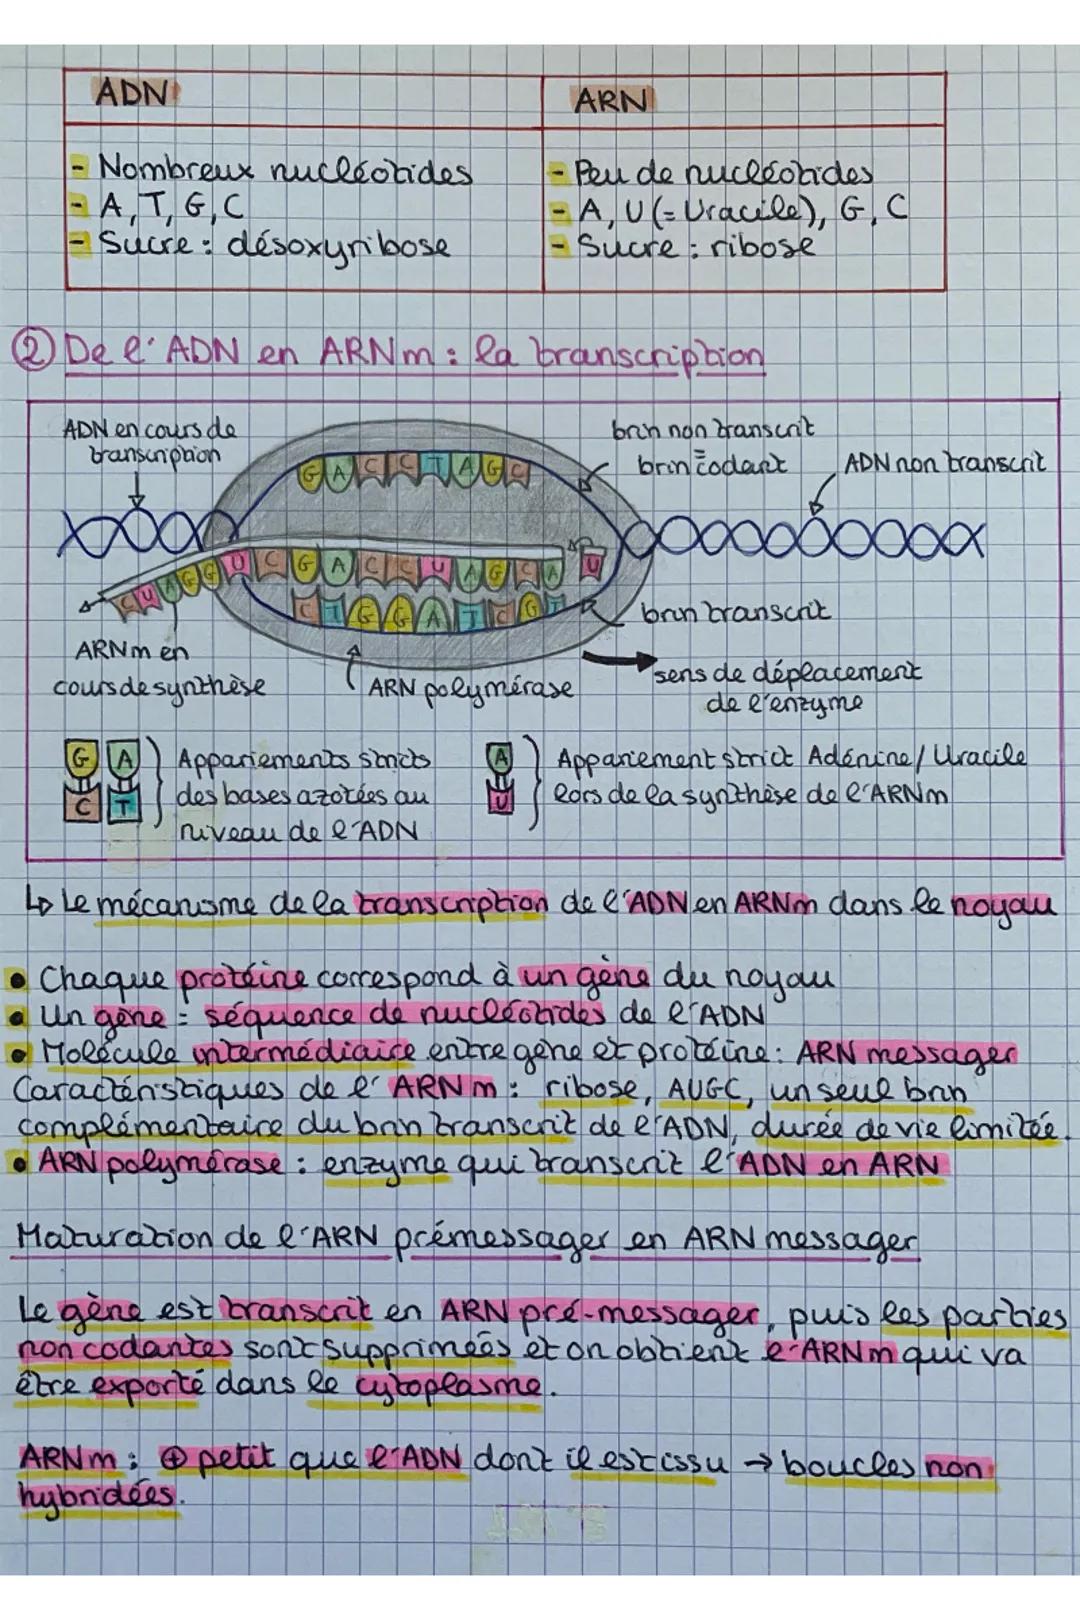 ADN
ARN
- Nombreux nucléotides
- A, T, G, C
- Sucre : désoxyribose
- Peu de nucléotides
- A, U (= Uracile), G, C
- Sucre : ribose
② De l'ADN en ARNm : la transcription
ADN en cours de
transcription
brin non transcrit
brin codant
ADN non transcrit
G A C C T A G C
C U A G G U C G A C C U A G C A U
C T G G A T C G T
brin transcrit
ARNm en
cours de synthèse
ARN polymérase
sens de déplacement
de l'enzyme
G A
C T
Appariements stricts
des bases azotées au
niveau de l'ADN
A
U
Appariement strict Adénine / Uracile
lors de la synthèse de l'ARNm
↳ Le mécanisme de la transcription de l'ADN en ARNm dans le noyau
• Chaque protéine correspond à un gène du noyau
• Un gène = séquence de nucléotides de l'ADN
• Molécule intermédiaire entre gène et protéine : ARN messager
Caractéristiques de l'ARNm : ribose, AUGC, un seul brin
complémentaire du brin transcrit de l'ADN, durée de vie limitée.
• ARN polymérase : enzyme qui transcrit l'ADN en ARN
Maturation de l'ARN prémessager en ARN messager
Le gène est transcrit en ARN pré-messager, puis les parties
non codantes sont supprimées et on obtient l'ARNm qui va
être exporté dans le cytoplasme.
ARNm : ⊕ petit que l'ADN dont il est issu → boucles non
hybridées.